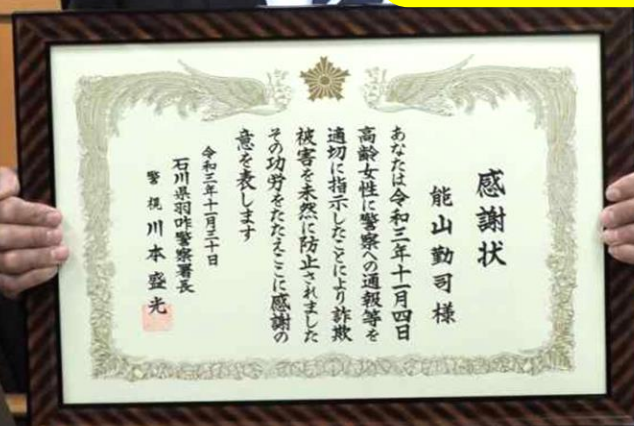 感謝状
能山勤司様
あなたは令和三年十一月四日
高齢女性に警察への通報等を
適切に指示したことにより詐欺
被害を未然に防止されました
その功労をたたえここに感謝の
意を表します
令和三年十一月三十日
石川県羽咋警察署長
警視川本盛光